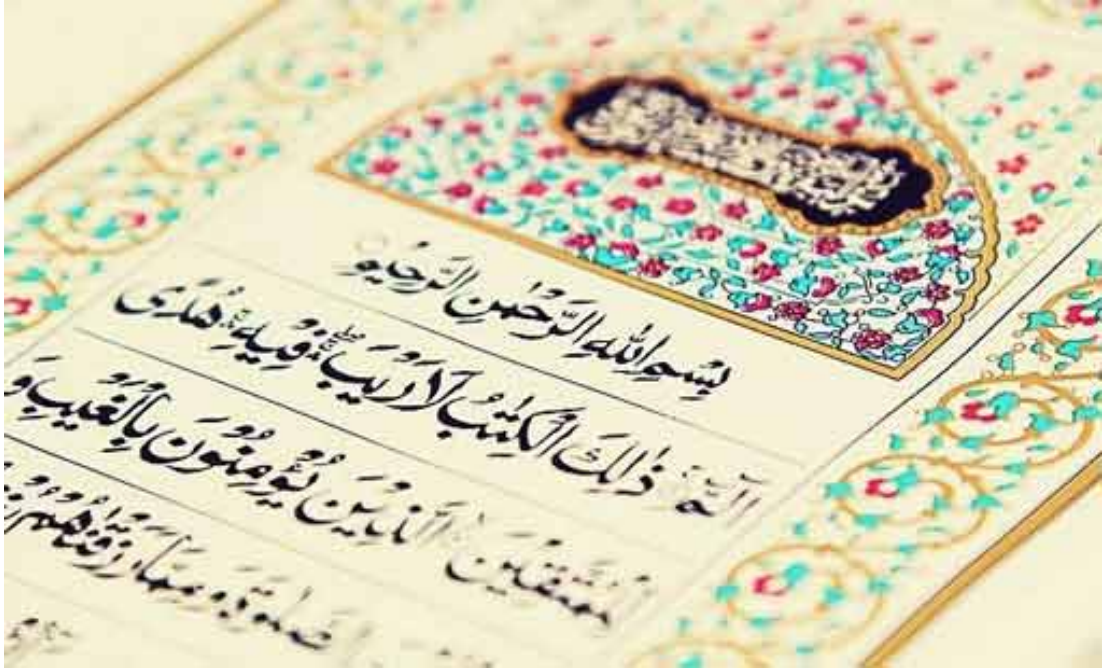 بِسْمِ اللّٰهِ الرَّحْمٰنِ الرَّحِيْمِ
الٓمّٓ ذٰلِكَ الْكِتٰبُ لَا رَيْبَ فِيْهِ هُدًى
لِّلْمُتَّقِيْنَ الَّذِيْنَ يُؤْمِنُوْنَ بِالْغَيْبِ وَ
الصَّلٰوةَ وَمِمَّا رَزَقْنٰهُمْ